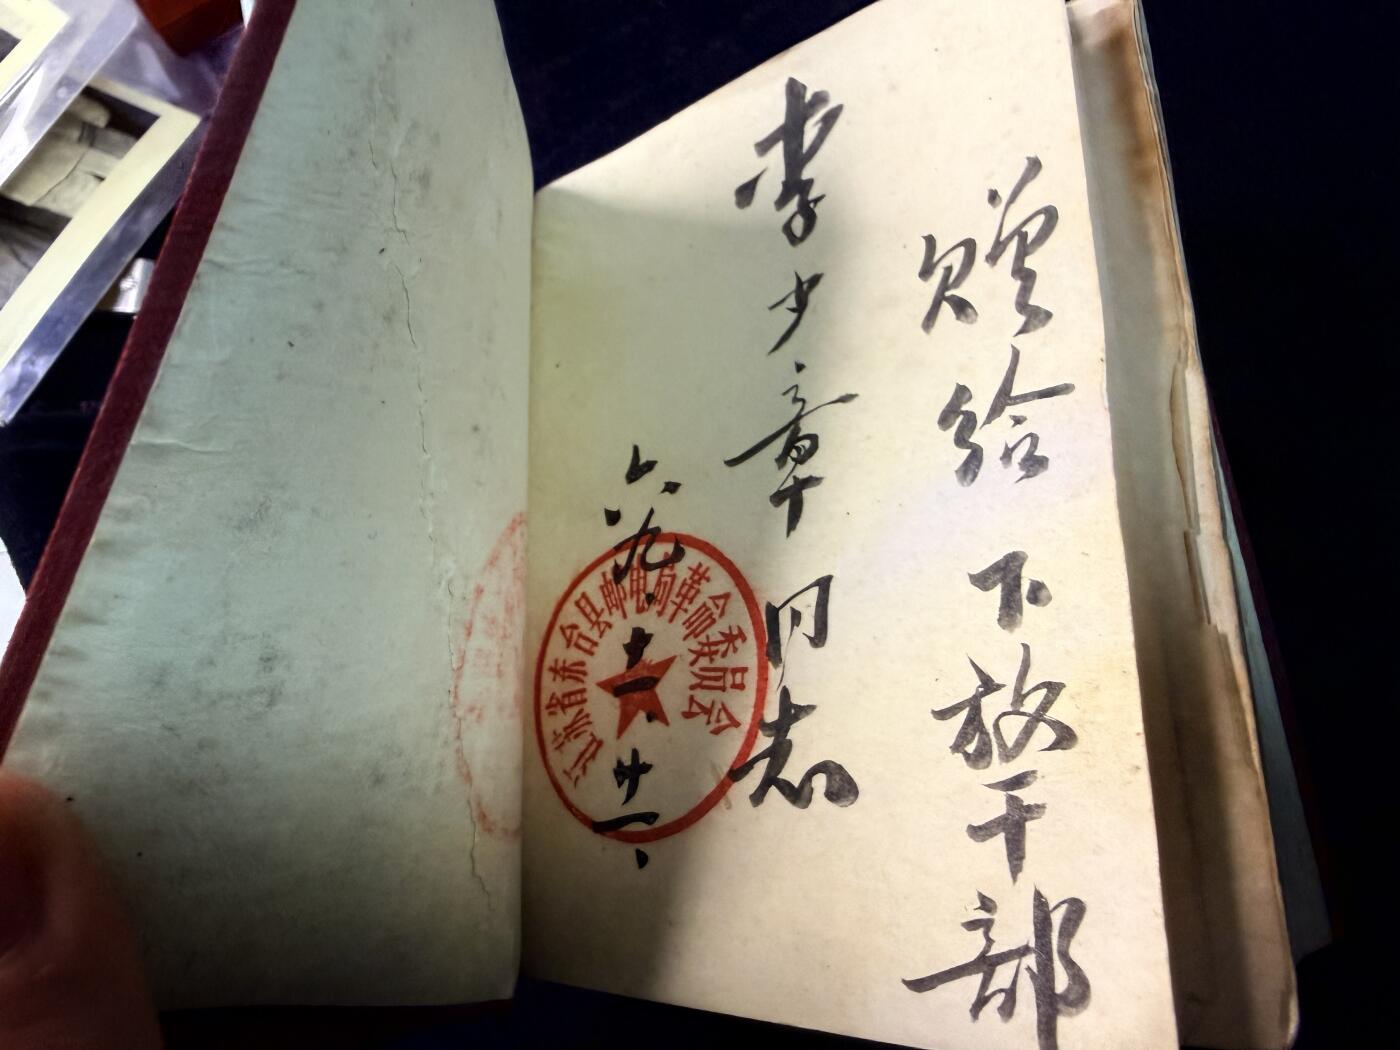 赠给下放干部
李少章同志
六九.十一.廿一.
江苏省东台县邮电局革命委员会